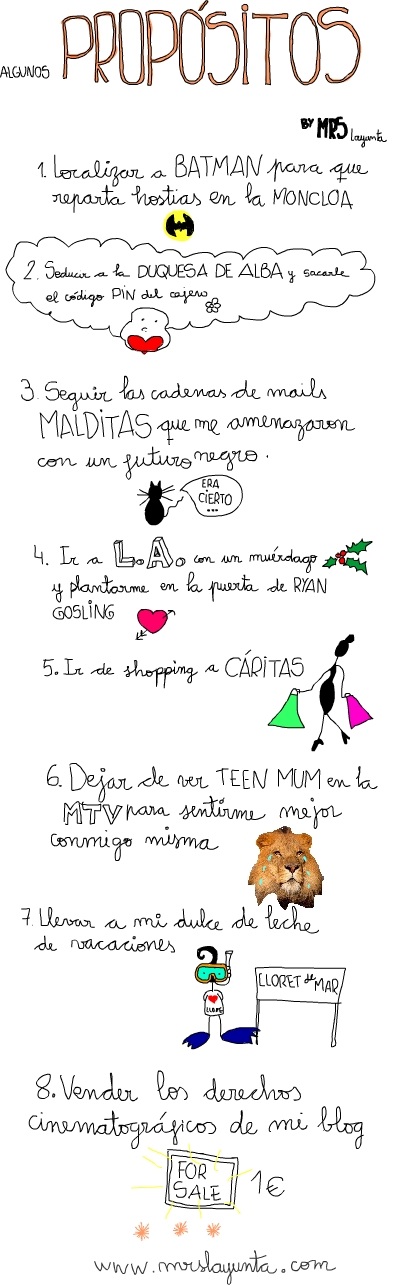 ALGUNOS PROPÓSITOS
BY MRS Layunta
1. Localizar a BATMAN para que
reparta hostias en la MONCLOA
2. Seducir a la DUQUESA DE ALBA y sacarle
el código PIN del cajero
3. Seguir las cadenas de mails
MALDITAS que me amenazaron
con un futuro negro.
ERA
CIERTO
...
4. Ir a L.A. con un muérdago
y plantarme en la puerta de RYAN
GOSLING
5. Ir de shopping a CÁRITAS
6. Dejar de ver TEEN MUM en la
MTV para sentirme mejor
conmigo misma
7. Llevar a mi dulce de leche
de vacaciones
LLORET de MAR
8. Vender los derechos
cinematográficos de mi blog
FOR
SALE
1€
www.mrslayunta.com